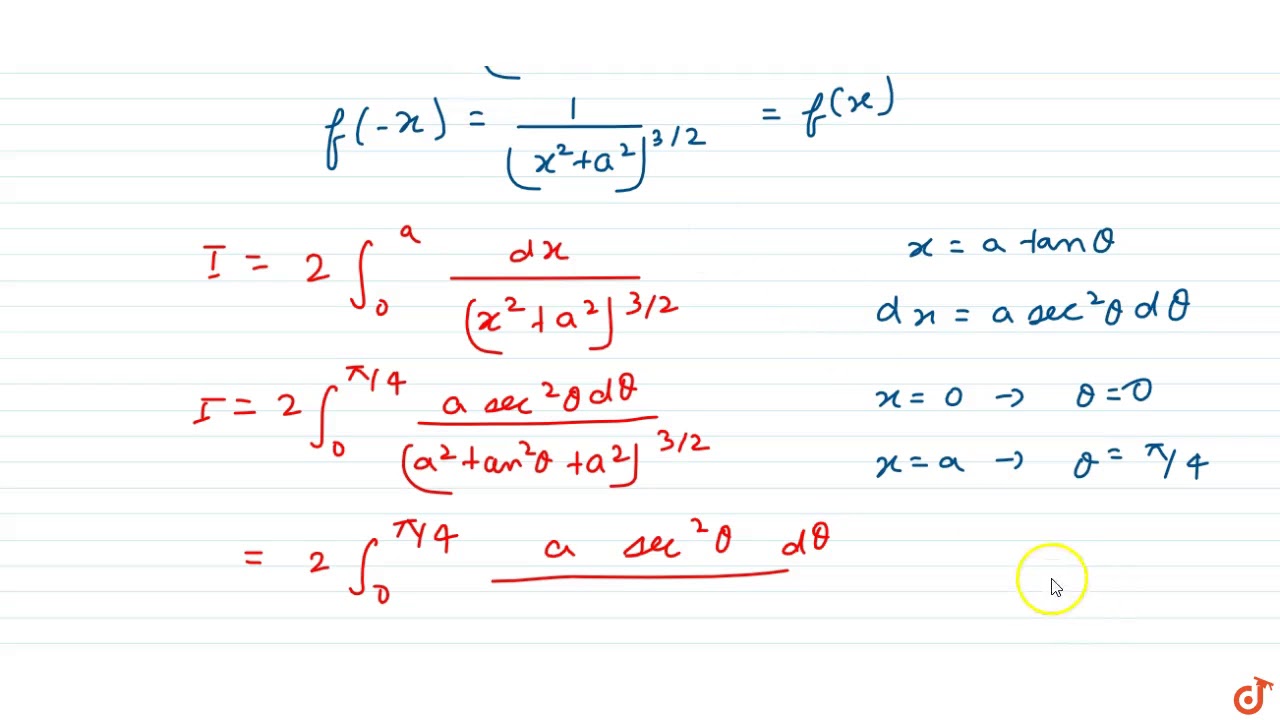 f(-x) = 1/(x²+a²)^3/2 = f(x)
I = 2 ∫₀^a dx/(x²+a²)^3/2
x = a tanθ
dx = a sec²θ dθ
I = 2 ∫₀^π/4 a sec²θ dθ/(a²+tan²θ+a²)^3/2
x = 0 → θ = 0
x = a → θ = π/4
= 2 ∫₀^π/4 a sec²θ dθ